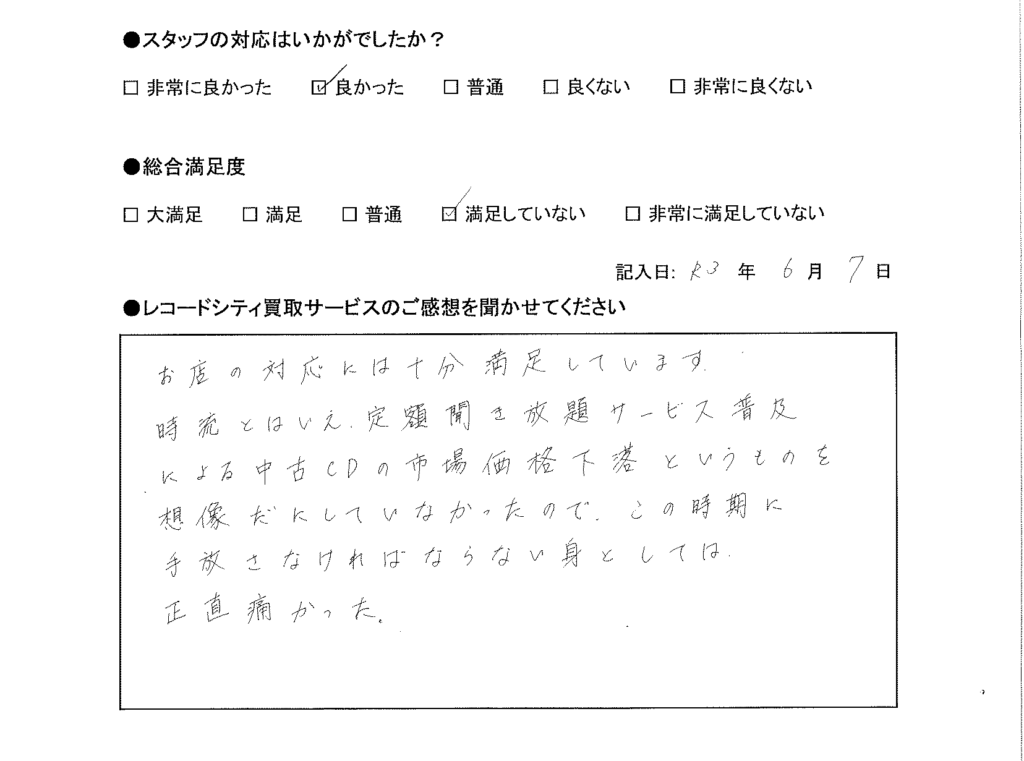 ●スタッフの対応はいかがでしたか？
□ 非常に良かった ☑ 良かった □ 普通 □ 良くない □ 非常に良くない
●総合満足度
□ 大満足 □ 満足 □ 普通 ☑ 満足していない □ 非常に満足していない
記入日: R3 年 6 月 7 日
●レコードシティ買取サービスのご感想を聞かせてください
お店の対応には十分満足しています.
時流とはいえ、定額聞き放題サービス普及
による中古CDの市場価格下落というものを
想像だにしていなかったので、この時期に
手放さなければならない身としては、
正直痛かった。